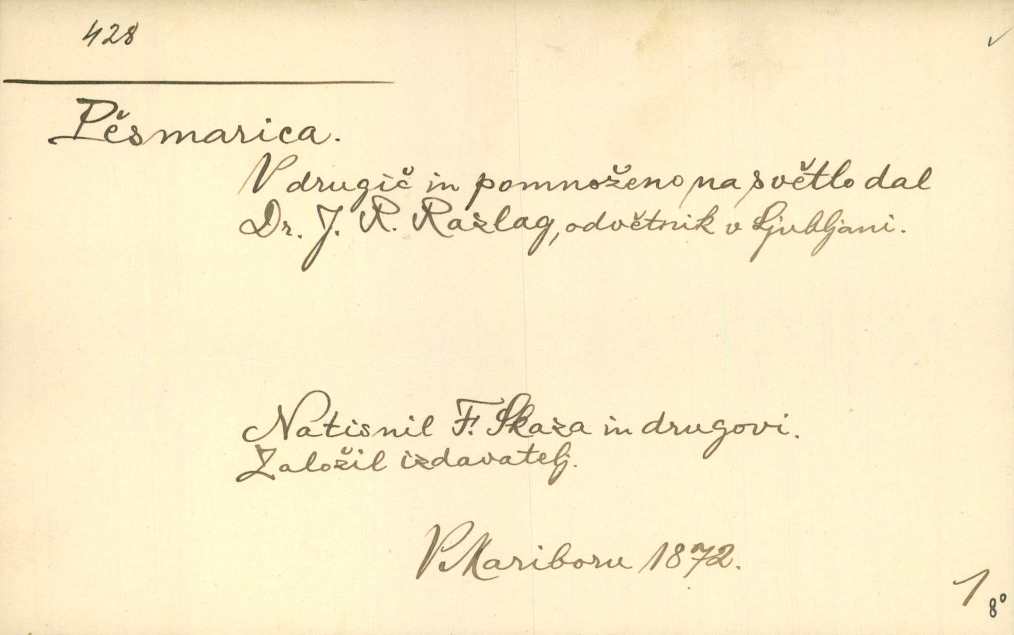 428
Pěsmarica.
V drugič in pomnoženo na světlo dal
Dr. J. R. Razlag, odvětnik v Ljubljani.
Natisnil F. Skaza in drugovi.
Založil izdavatelj.
V Mariboru 1872.
1 8°